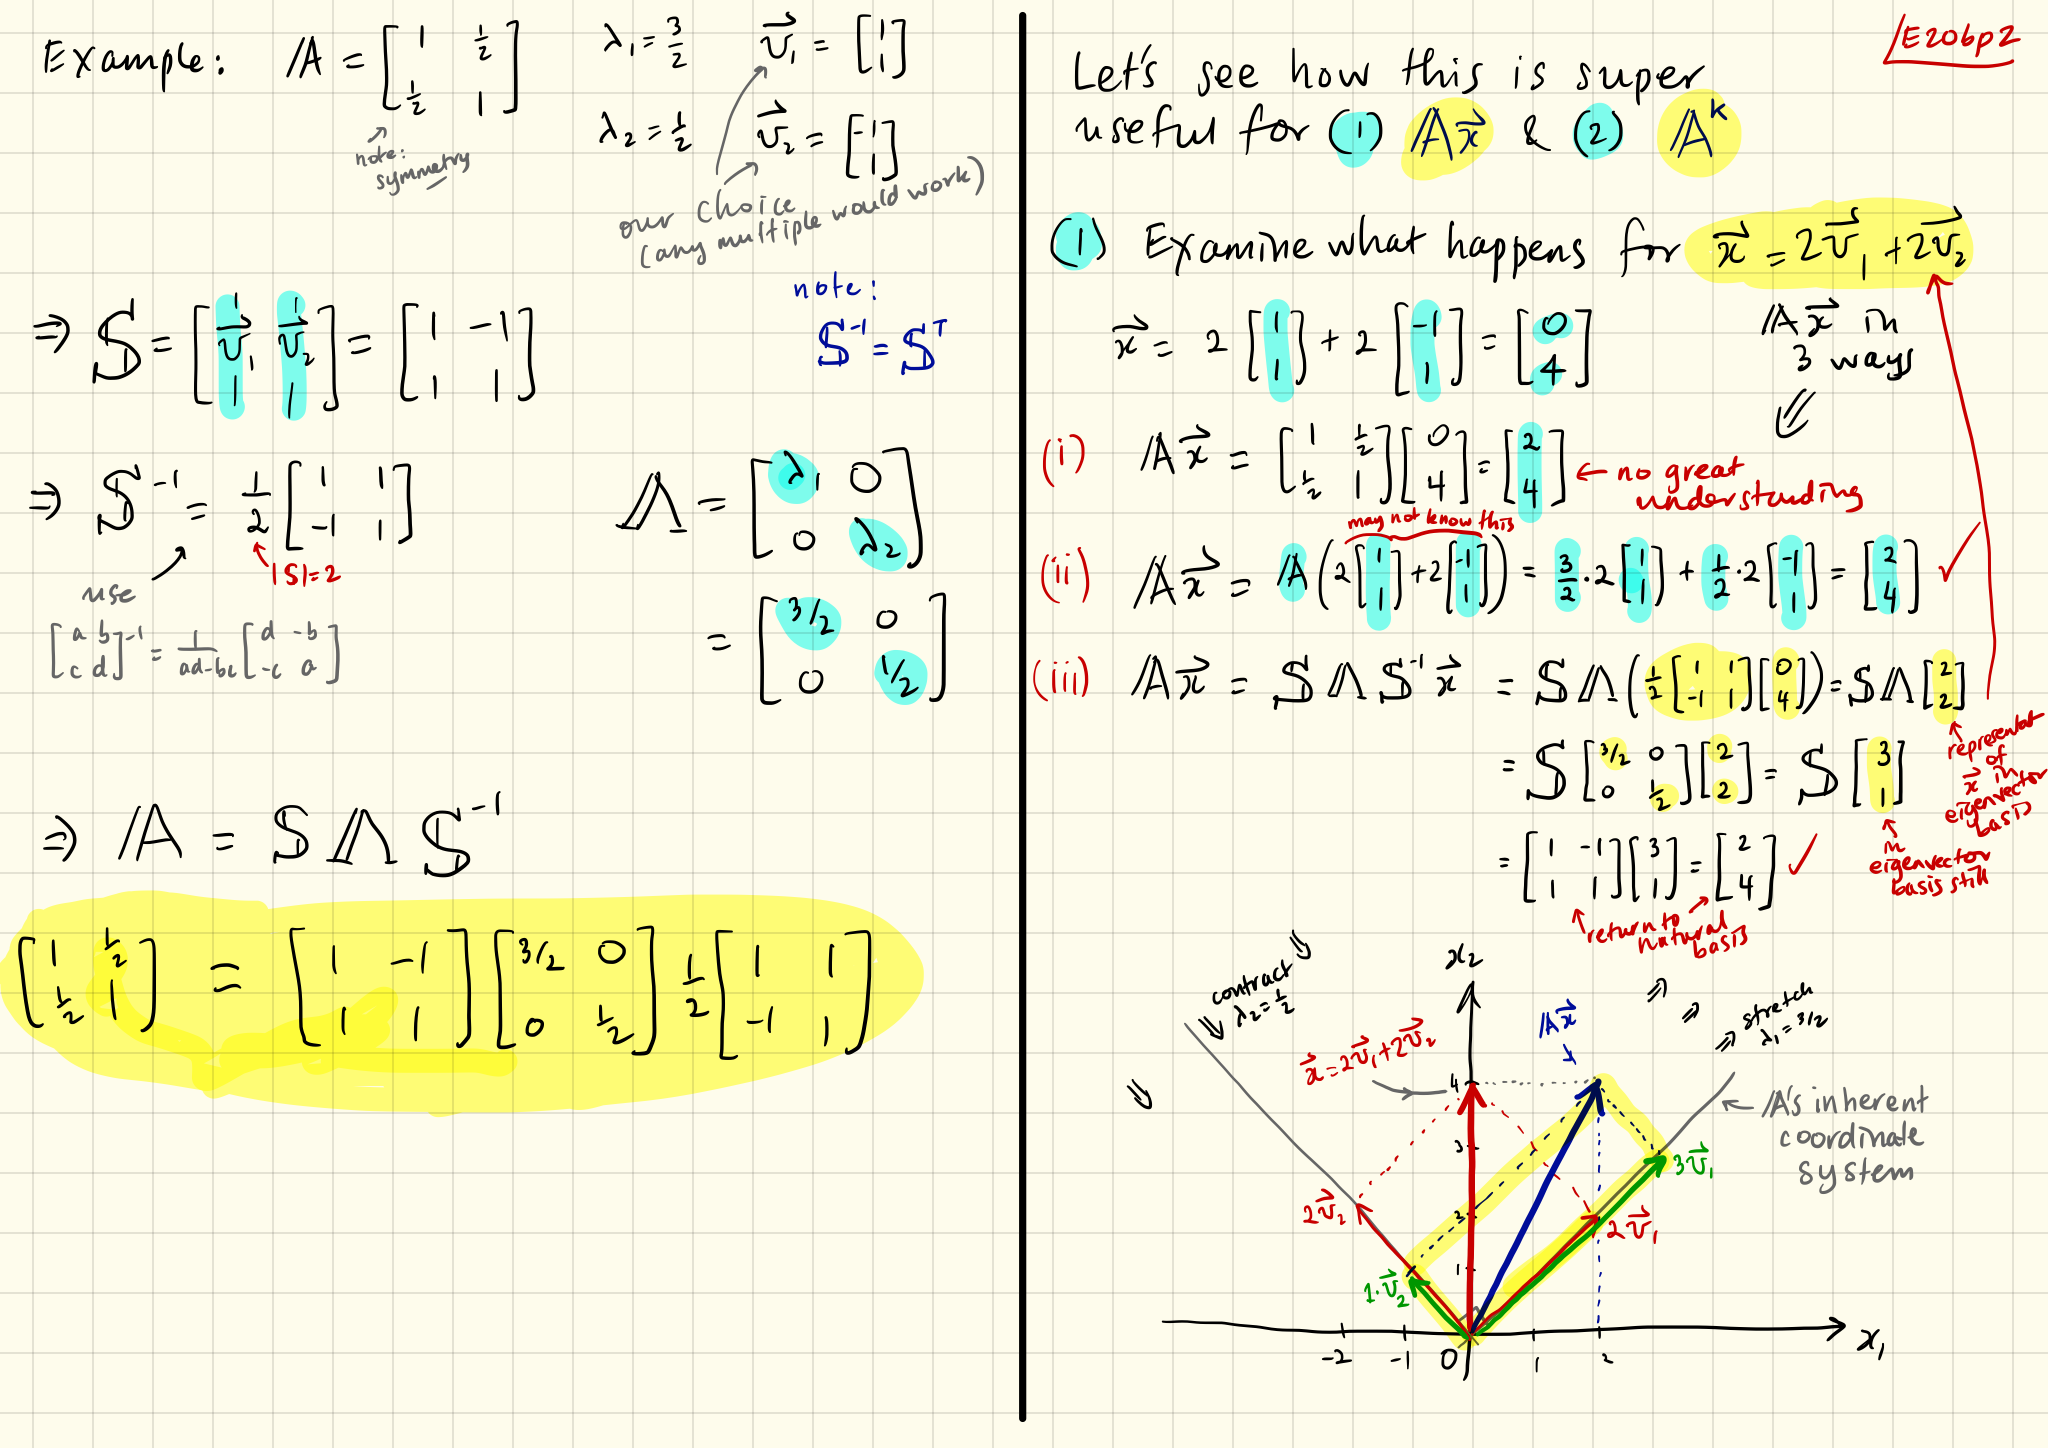 Example: A = [1 1/2; 1/2 1] λ₁ = 3/2 v⃗₁ = [1; 1]
λ₂ = 1/2 v⃗₂ = [-1; 1]
note: symmetry
our choice
(any multiple would work)
⇒ S = [v⃗₁ v⃗₂] = [1 -1; 1 1]
note:
S⁻¹ = Sᵀ
⇒ S⁻¹ = 1/2 [1 1; -1 1]
|S| = 2
use
[a b; c d]⁻¹ = 1/(ad-bc) [d -b; -c a]
Λ = [λ₁ 0; 0 λ₂]
= [3/2 0; 0 1/2]
⇒ A = S Λ S⁻¹
[1 1/2; 1/2 1] = [1 -1; 1 1] [3/2 0; 0 1/2] 1/2 [1 1; -1 1]
E206p2
Let's see how this is super
useful for (1) Ax⃗ & (2) Aᵏ
(1) Examine what happens for x⃗ = 2v⃗₁ + 2v⃗₂
x⃗ = 2 [1; 1] + 2 [-1; 1] = [0; 4]
Ax⃗ in
3 ways
(i) Ax⃗ = [1 1/2; 1/2 1] [0; 4] = [2; 4] ← no great
understanding
may not know this
(ii) Ax⃗ = A (2 [1; 1] + 2 [-1; 1]) = 3/2 · 2 [1; 1] + 1/2 · 2 [-1; 1] = [2; 4] ✓
(iii) Ax⃗ = S Λ S⁻¹ x⃗ = S Λ (1/2 [1 1; -1 1] [0; 4]) = S Λ [2; 2]
representat
of
x⃗ in
eigenvector
basis
= S [3/2 0; 0 1/2] [2; 2] = S [3; 1]
in
eigenvector
basis still
= [1 -1; 1 1] [3; 1] = [2; 4] ✓
return to
natural
basis
contract
λ₂ = 1/2
x₂
Ax⃗
stretch
λ₁ = 3/2
x⃗ = 2v⃗₁ + 2v⃗₂
4
3
2
1
← A's inherent
coordinate
system
3v⃗₁
2v⃗₂
2v⃗₁
1·v⃗₂
-2 -1 0 1 2
x₁